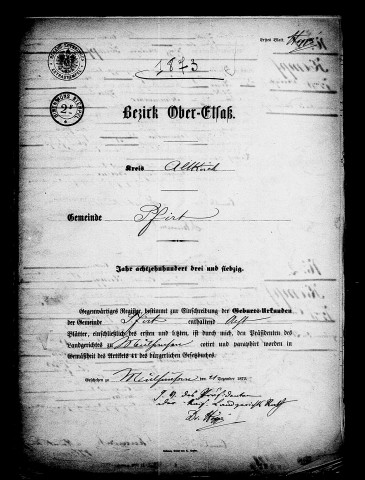 Erstes Blatt.
1873
Bezirk Ober-Elsaß.
Kreis Altkirch
Gemeinde Pfirt
Jahr achtzehnhundert drei und siebzig.
Gegenwärtiges Register, bestimmt zur Einschreibung der Geburts-Urkunden
der Gemeinde Pfirt enthaltend Acht
Blätter, einschließlich des ersten und letzten, ist durch mich, den Präsidenten des
Landgerichts zu Mülhausen cotirt und paraphirt worden in
Gemäßheit des Artikels 41 des bürgerlichen Gesetzbuchs.
Geschehen zu Mülhausen den 21 Dezember 1872.
des Präsidenten
Landgerichts
Dr.